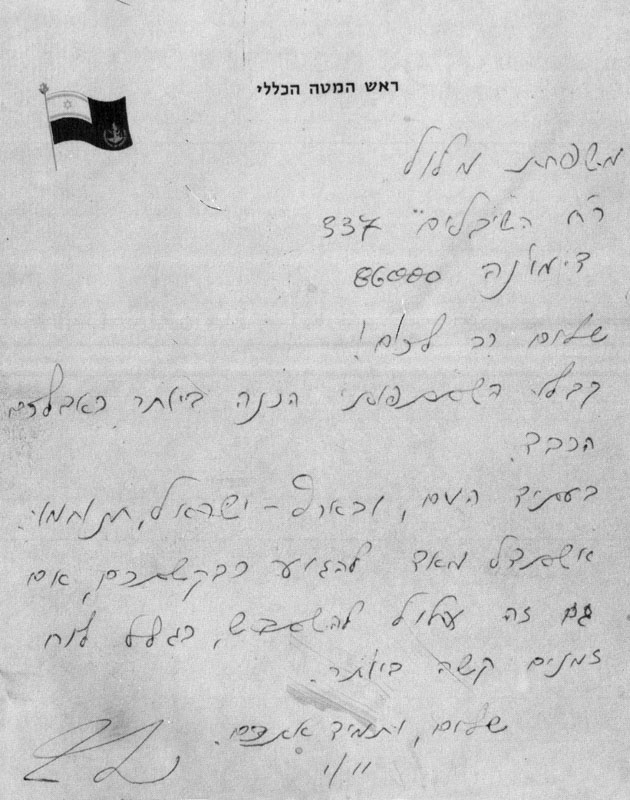 ראש המטה הכללי
משפחת מלול
רח' השיבלים 337
דימונה 86000
שלום רב לכם!
קבלו השתתפותי הכנה ביותר באבלכם
הכבד.
בעתיד העם, ובארץ-ישראל, תנוחמו.
אשתדל מאד להגיע כבקשתכם, אם
גם זה עלול להשתבש, בגלל לוח
זמנים קשה ביותר.
שלום, ותמיד אתכם.
11/1